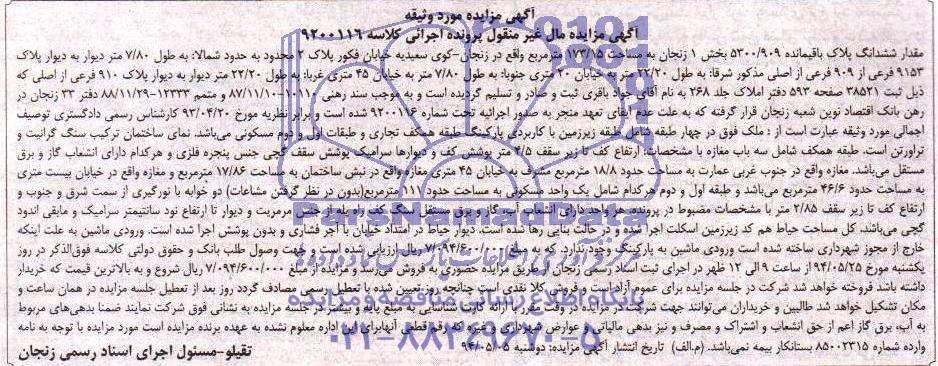 آگهی مزایده مورد وثیقه
آگهی مزایده مال غیر منقول پرونده اجرائی کلاسه ۹۲۰۰۱۱۶
مقدار ششدانگ پلاک باقیمانده ۵۳۰۰/۹۰۹ بخش ۱ زنجان به مساحت ۱۷۳/۱۵ مترمربع واقع در زنجان -کوی سعیدیه خیابان فکور پلاک ۲ محدود به حدود شمالا: به طول ۷/۸۰ متر دیوار به دیوار پلاک
۹۱۵۳ فرعی از ۹۰۹ فرعی از اصلی مذکور شرقا: به طول ۲۲/۲۰ متر به خیابان ۲۰ متری جنوبا: به طول ۷/۸۰ متر به خیابان ۴۵ متری غربا: به طول ۲۲/۲۰ متر دیوار به دیوار پلاک ۹۱۰ فرعی از اصلی که
ذیل ثبت ۳۸۵۲۱ صفحه ۵۹۳ دفتر املاک جلد ۲۶۸ به نام آقای جواد باقری ثبت و صادر و تسلیم گردیده است و به موجب سند رهنی ۱۰۱۱۷-۸۷/۱۱/۱۰ و متمم ۱۲۳۳۳-۸۸/۱۱/۲۹ دفتر ۳۳ زنجان در
رهن بانک اقتصاد نوین شعبه زنجان قرار گرفته که به علت عدم ایفای تعهد منجر به صدور اجرائیه تحت شماره ۹۲۰۰۱۱۶ شده است و برابر نظریه مورخ ۹۳/۰۴/۲۰ کارشناس رسمی دادگستری توصیف
اجمالی مورد وثیقه عبارت است از : ملک فوق در چهار طبقه شامل طبقه زیرزمین با کاربردی پارکینگ طبقه همکف تجاری و طبقات اول و دوم مسکونی می‌باشد. نمای ساختمان ترکیب سنگ گرانیت و
تراورتن است. طبقه همکف شامل سه باب مغازه با مشخصات: ارتفاع کف تا زیر سقف ۴/۵ متر پوشش کف و دیوارها سرامیک پوشش سقف گچی جنس پنجره فلزی و هرکدام دارای انشعاب گاز و برق
مستقل می‌باشد. مغازه واقع در جنوب غربی عمارت به مساحت حدود ۱۸/۸ مترمربع مشرف به خیابان ۴۵ متری مغازه واقع در نبش ساختمان به مساحت ۱۷/۸۶ مترمربع و مغازه واقع در خیابان بیست متری
به مساحت حدود ۴۶/۶ مترمربع می‌باشد و طبقه اول و دوم هرکدام شامل یک واحد مسکونی به مساحت حدود ۱۱۱ مترمربع(بدون در نظر گرفتن مشاعات) دو خوابه با نورگیری از سمت شرق و جنوب و
ارتفاع کف تا زیر سقف ۲/۸۵ متر با مشخصات مضبوط در پرونده. هر واحد دارای انشعاب آب، گاز و برق مستقل سنگ کف راه پله از جنس مرمریت و دیوار تا ارتفاع نود سانتیمتر سرامیک و مابقی اندود
گچی می‌باشد. کل مساحت حیاط هم کد زیرزمین اسکلت اجرا شده و در حالت بنایی رها شده است. دیوار حیاط در امتداد خیابان با آجر فشاری و بدون پوشش اجرا شده است. ورودی ماشین به علت اینکه
خارج از مجوز شهرداری ساخته شده است ورودی ماشین به پارکینگ وجود ندارد. که به مبلغ ۷/۰۹۴/۶۰۰/۰۰۰ ریال ارزیابی شده است و جهت وصول طلب بانک و حقوق دولتی کلاسه فوق‌الذکر در روز
یکشنبه مورخ ۹۴/۰۵/۲۵ از ساعت ۹ الی ۱۲ ظهر در اجرای ثبت اسناد رسمی زنجان از طریق مزایده حضوری به فروش می‌رسد و مزایده از مبلغ ۷/۰۹۴/۶۰۰/۰۰۰ ریال شروع و به بالاترین قیمت که خریدار
داشته باشد فروخته خواهد شد شرکت در جلسه مزایده برای عموم آزاد است و فروش کلا نقدی است چنانچه روز تعیین شده با تعطیل رسمی مصادف گردد روز بعد از تعطیل جلسه مزایده در همان ساعت و
مکان تشکیل خواهد شد طالبین و خریداران می‌توانند جهت شرکت در مزایده در وقت مقرر با ارائه کارت شناسایی به مبلغ پایه و بیشتر در جلسه مزایده به نشانی فوق شرکت نمایند ضمنا بدهی‌های مربوط
به آب، برق گاز اعم از حق انشعاب و اشتراک و مصرف و نیز بدهی مالیاتی و عوارض شهرداری و غیره که رقم قطعی آنها برای این اداره معلوم نشده به عهده برنده مزایده است مورد مزایده با توجه به نامه
وارده شماره ۸۵۰۰۲۳۱۵ بستانکار بیمه نمی‌باشد. (م.الف) تاریخ انتشار آگهی مزایده: دوشنبه ۹۴/۰۵/۰۵
تقیلو-مسئول اجرای اسناد رسمی زنجان
9181
ParsNamadData
پایگاه اطلاع رسانی مناقصه و مزایده
۰۲۱-۸۸۳۴۹۶۷۰-۵